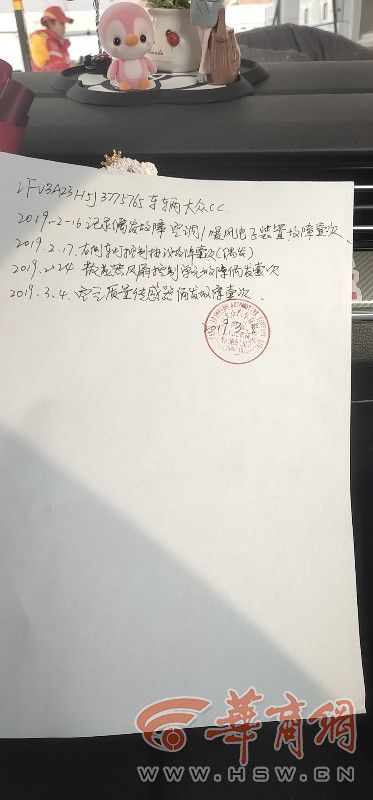 LFV3A23H5J3775765车辆大众CC
2019-2-16记录偶发故障 空调/暖风电子装置故障壹次、
2019.2.17.右侧车灯控制
故障壹次(偶发)
2019.2.24 散热器风扇控制
故障偶发壹次
2019.3.4.空气质量传感器偶发故障壹次.
2019.3.
華商網
WWW.HSW.CN